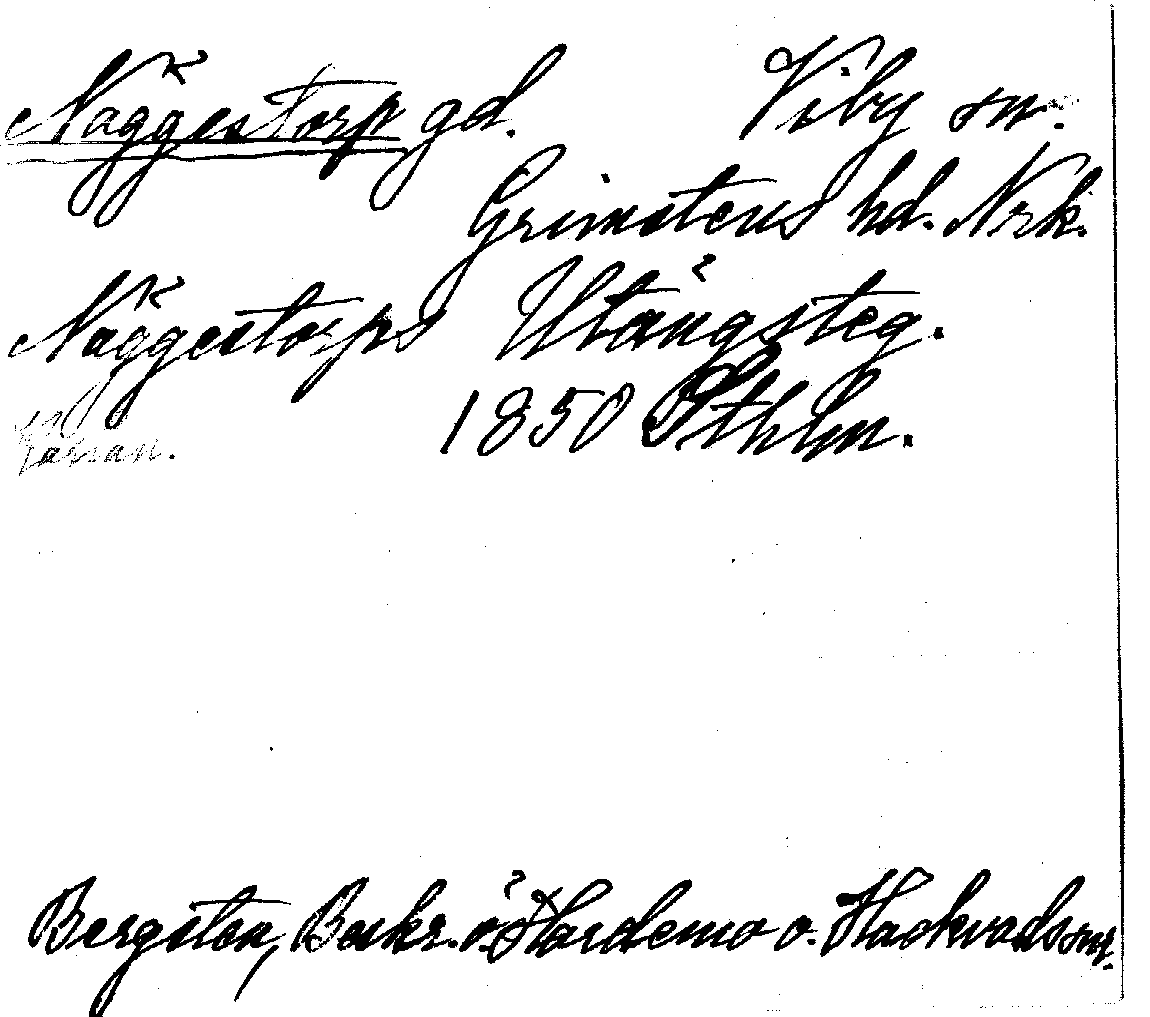 Näggestorp gd. Viby sn.
Grimstens hd. Nrk.
Näggestorps Utängsteg.
1850 Sthlm.
Bergsten, Beskr. ö. Hardemo o. Hackvads snr.